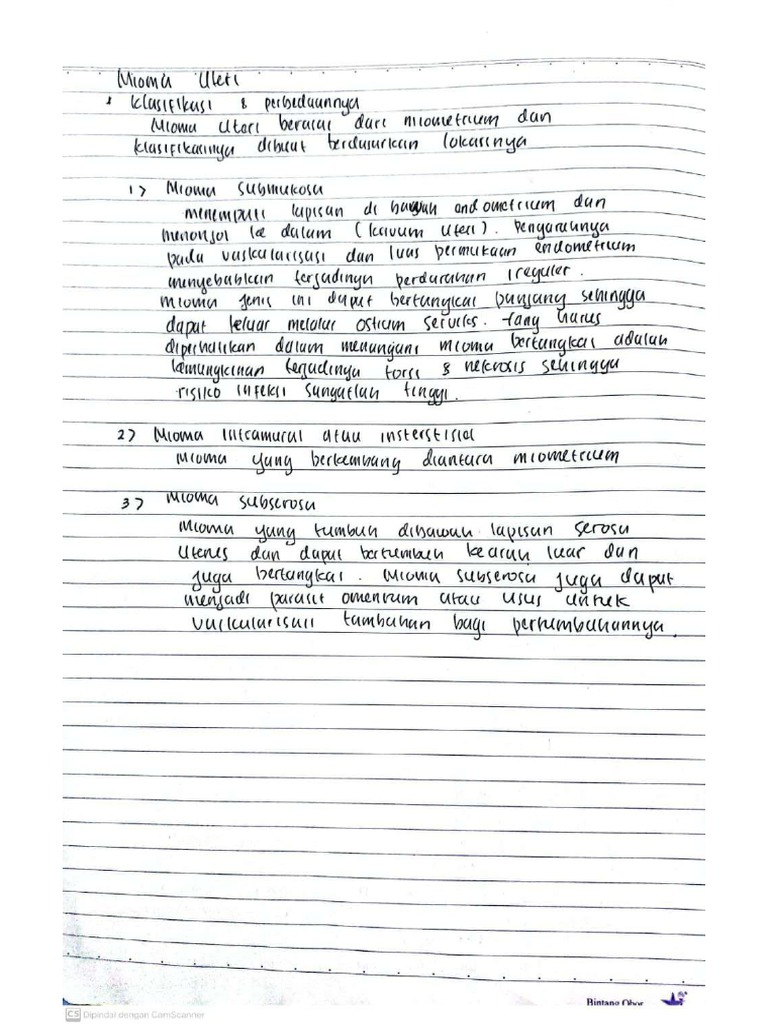 Mioma Uteri
: Klasifikasi & perbedaannya
Mioma Uteri berasal dari miometrium dan
klasifikasinya dibuat berdasarkan lokasinya
1) Mioma submukosa
menempati lapisan di bawah endometrium dan
menonjol ke dalam (kavum uteri). Pengaruhnya
pada vaskularisasi dan luas permukaan endometrium
menyebabkan terjadinya perdarahan irreguler.
Mioma jenis ini dapat bertangkai panjang sehingga
dapat keluar melalui ostium serviks. Yang harus
diperhatikan dalam menangani mioma bertangkai adalah
kemungkinan terjadinya torsi & nekrosis sehingga
risiko infeksi sangatlah tinggi.
2) Mioma intramural atau insterstisial
Mioma yang berkembang diantara miometrium
3) Mioma subserosa
Mioma yang tumbuh dibawah lapisan serosa
uterus dan dapat bertumbuh kearah luar dan
juga bertangkai. Mioma subserosa juga dapat
menjadi parasit omentum atau usus untuk
vaskularisasi tambahan bagi pertumbuhannya.
Bintang Obor
CS Dipindai dengan CamScanner